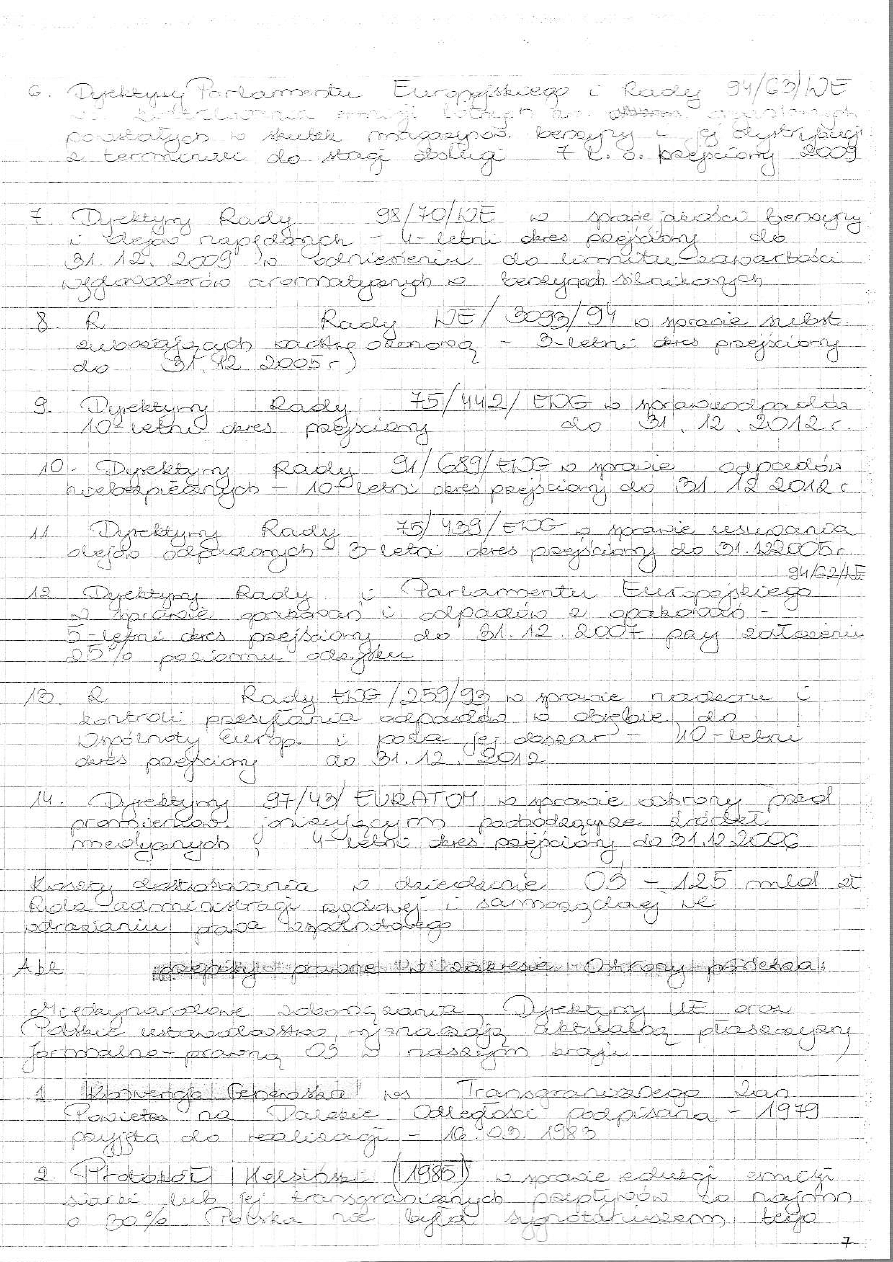 6. Dyrektywy Parlamentu Europejskiego i Rady 94/63/WE
powstałych w skutek magazynow. benzyny i jej dystrybucji
z terminali do stacji obsługi 7 l. o. przejściowy 2009
7 Dyrektywy Rady 98/70/WE w sprawie jakości benzyny
i olejów napędowych - 4-letni okres przejściowy do
31.12.2009 w odniesieniu do limitu zawartości
węglowodorów aromatycznych w benzynach silnikowych
8. R Rady WE/3093/94 w sprawie subst.
zubożających warstwę ozonową - 3-letni okres przejściowy
do 31.12 2005 r)
9. Dyrektywy Rady 75/442/EWG w sprawie odpadów
10-letni okres przejściowy do 31.12.2012 r.
10. Dyrektywy Rady 91/689/EWG w sprawie odpadów
niebezpiecznych - 10-letni okres przejściowy do 31.12 2012 r
11 Dyrektywy Rady 75/439/EWG w sprawie usuwania
olejów odpadowych - 3-letni okres przejściowy do 31.12.2005 r.
94/62/WE
12. Dyrektywy Rady i Parlamentu Europejskiego
w sprawie opakowań i odpadów z opakowań -
5-letni okres przejściowy do 31.12.2007 przy założeniu
25% poziomu odzysku
13. R Rady EWG/259/93 w sprawie nadzoru i
kontroli przesyłania odpadów w obrębie do
Wspólnoty Europ. i poza jej obszar - 10-letni
okres przejściowy do 31.12.2012
14. Dyrektywy 97/43/EURATOM w sprawie ochrony przed
promieniow. jonizującym pochodzące źródeł
medycznych, 4-letni okres przejściowy do 31.12.2006
Koszty dostosowania w dziedzinie OŚ - 125 mld zł
Rola administracji rządowej i samorządowej we
wdrażaniu prawa wspólnotowego
Akt przepisy prawne w zakresie Ochrony powietrza:
Międzynarodowe zobowiązania, Dyrektywy UE oraz
Polskie ustawodawstwo wyznaczają aktualną płaszczyznę
formalno-prawną OŚ w naszym kraju
1 Konwencja Genewska ws Transgranicznego Zan.
Powietrza na Dalekie Odległości podpisana - 1979
przyjęta do realizacji - 16.03.1983
2 Protokół Helsiński (1985) w sprawie redukcji emisji
siarki lub jej transgranicznych przepływów co najmn
o 30% Polska nie była sygnatariuszem tego
7